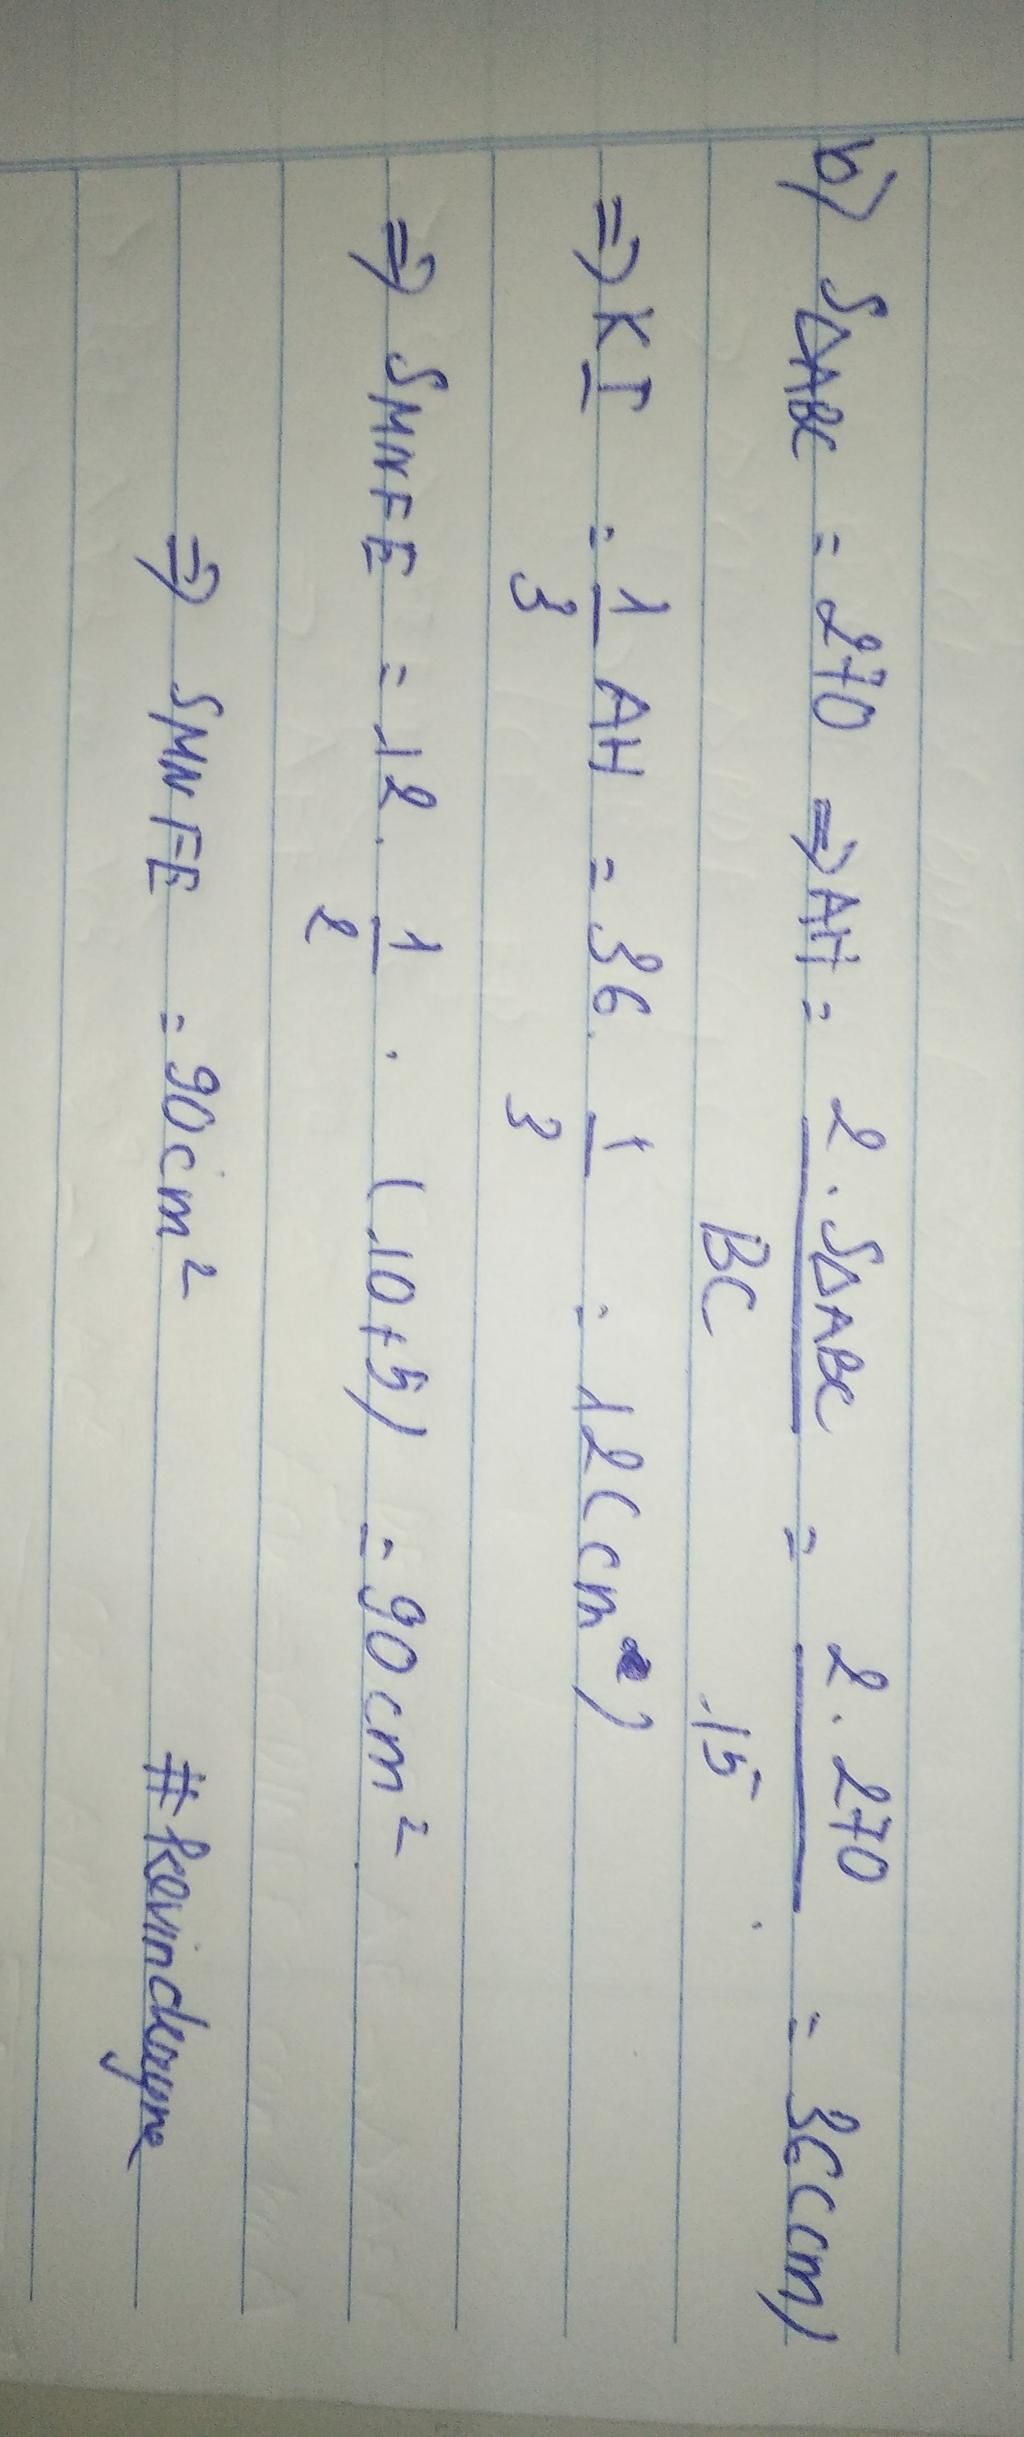 b) S△ABC = 270 ⇒ AH = 2 . S△ABC / BC = 2 . 270 / 15 = 36 (cm)
⇒ KI = 1/3 AH = 36 . 1/3 = 12 (cm)
⇒ SMNFE = 12 . 1/2 . (10 + 5) = 90 cm²
⇒ SMNFE = 90 cm²